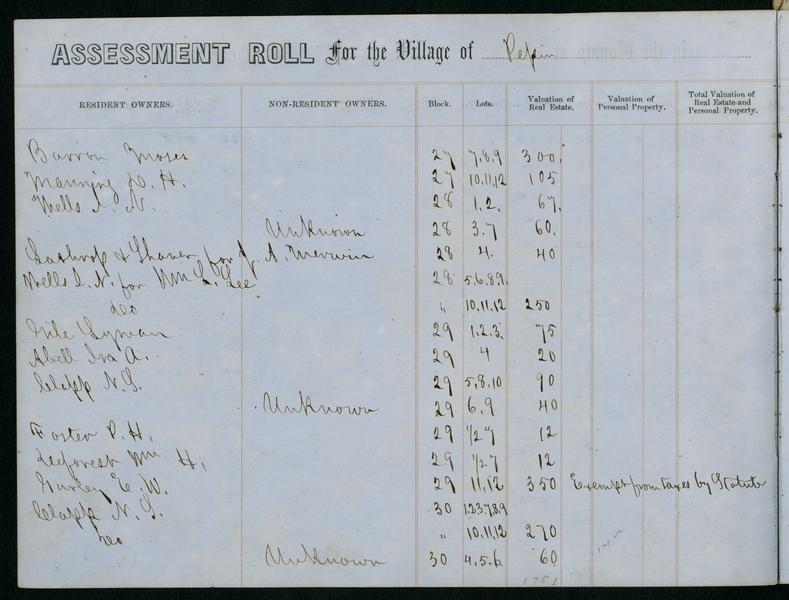 ASSESSMENT ROLL For the Village of Pepin
RESIDENT OWNERS. NON-RESIDENT OWNERS. Block. Lots. Valuation of Real Estate. Valuation of Personal Property. Total Valuation of Real Estate and Personal Property.
Barron Moses 27 7,8,9 300.
Manning D. H. 27 10,11,12 105
Wells I. N. 28 1,2. 67.
Unknown 28 3.7 60.
Lathrop & Shaver for J. A. Merwin 28 4. 40
Wells I. N. for Wm L. Lee 28 5.6.8.9.
do " 10.11.12 250
Lyman 29 1.2.3. 75
Abell Ira A. 29 4 20
Clapp N. G. 29 5,8,10 90
Unknown 29 6.9 40
Foster P. H. 29 1/2 7 12
Deforest Wm H. 29 1/2 7 12
Gurley E. W. 29 11,12 350 Exempt from taxes by Statute
Clapp N. G. 30 1,2,3,7,8,9
Do " 10,11,12 270
Unknown 30 4.5.6. 60
1751